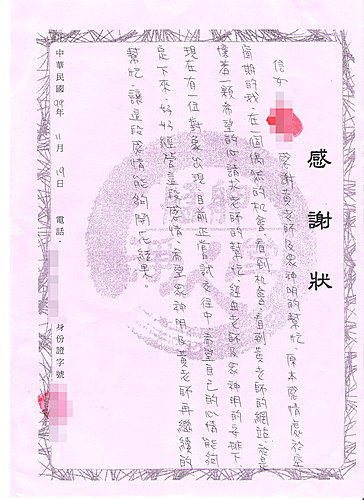 感謝狀
信女
感謝黃老師及眾神明的幫忙,原本感情處於空
窗期的我,在一個偶然的机會,看到机會,看到黃老師的網站,於是
懷著一顆希望的心請求老師的幫忙,經由老師及眾神明的安排下
現在有一位對象出現,目前正嘗試交往中,希望自己的心情能夠
定下來,好好經營這段感情,希望眾神明及黃老師再繼續的
幫忙,讓這段感情能夠開花結果。
中華民國 99 年 11 月 19 日 電話: 身份證字號